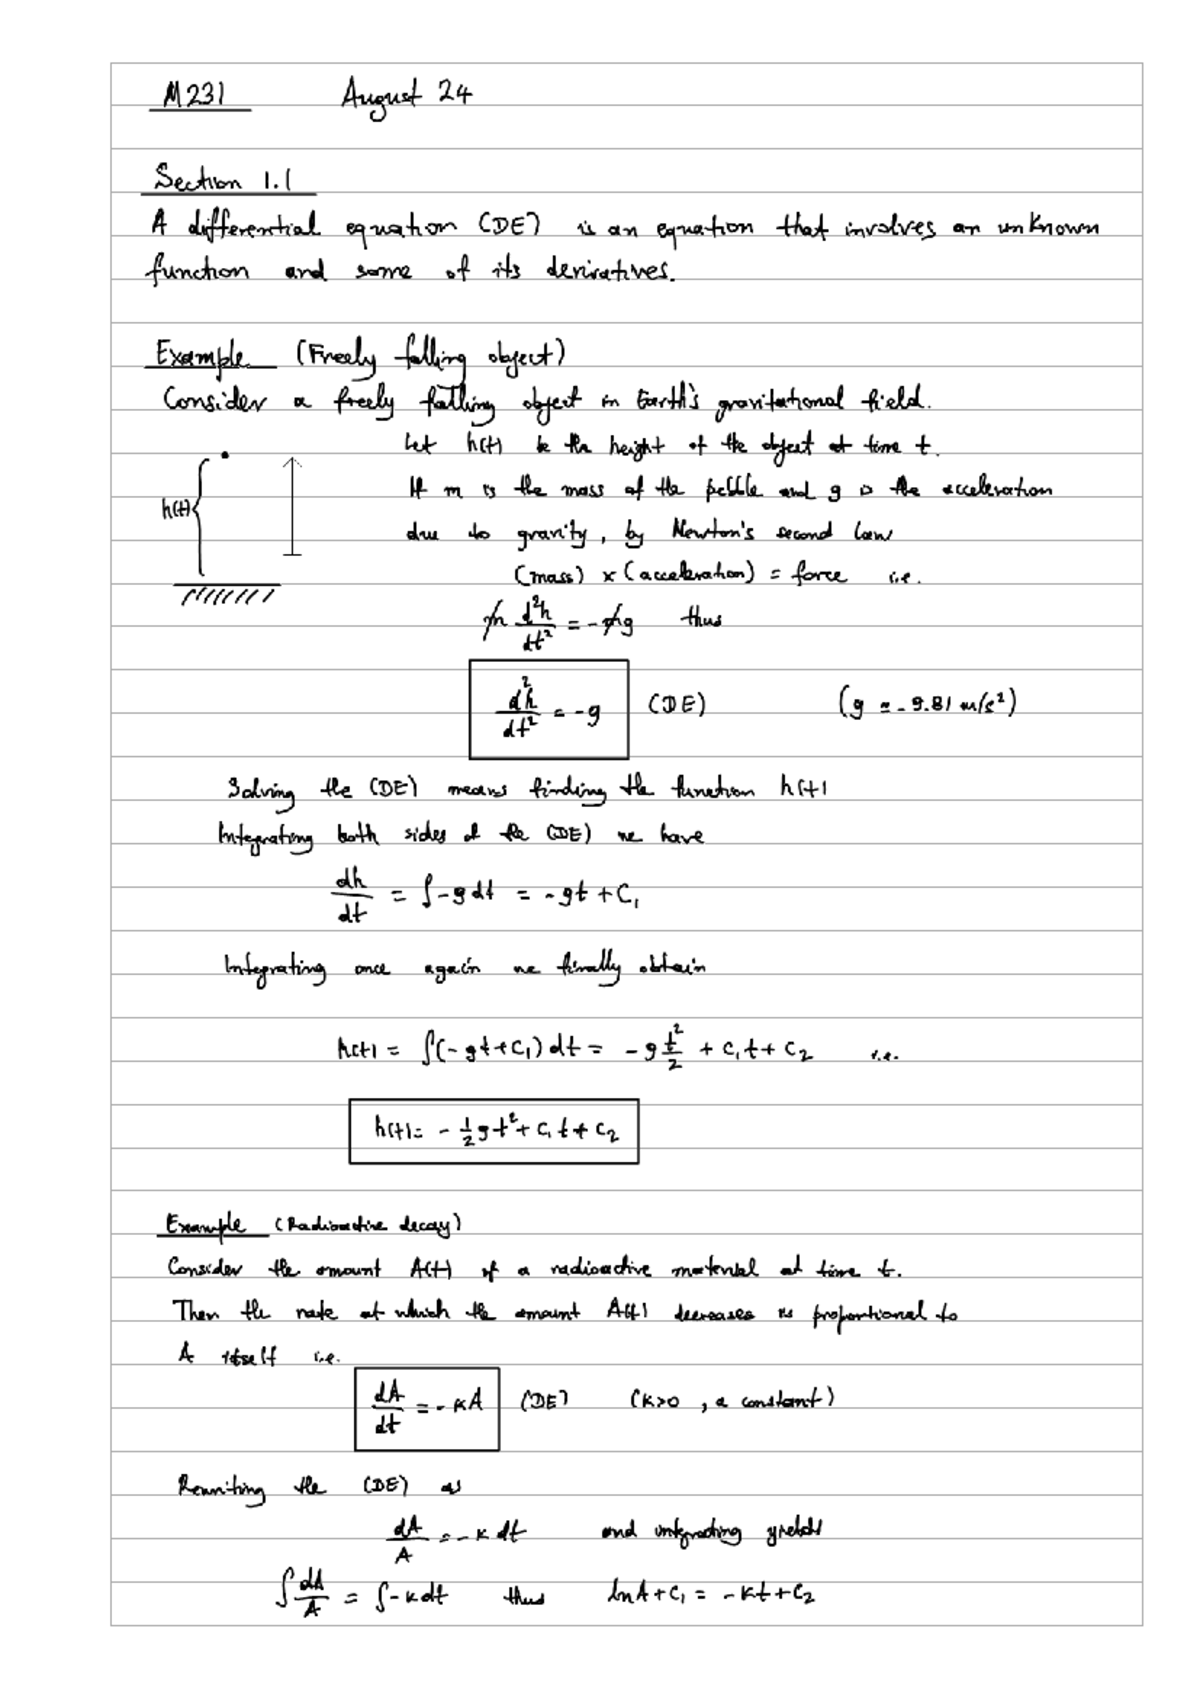 M231 August 24
Section 1.1
A differential equation (DE) is an equation that involves an unknown
function and some of its derivatives.
Example (Freely falling object)
Consider a freely falling object in Earth's gravitational field.
Let h(t) be the height of the object at time t.
h(t)
If m is the mass of the pebble and g is the acceleration
due to gravity, by Newton's second law
(mass) x (acceleration) = force i.e.
m d²h/dt² = -mg thus
d²h/dt² = -g (DE) (g = -9.81 m/s²)
Solving the (DE) means finding the function h(t)
Integrating both sides of the (DE) we have
dh/dt = ∫-g dt = -gt + C₁
Integrating once again we finally obtain
h(t) = ∫(-gt+C₁) dt = -g t²/2 + C₁t + C₂ i.e.
h(t) = -½gt² + C₁t + C₂
Example (Radioactive decay)
Consider the amount A(t) of a radioactive material at time t.
Then the rate at which the amount A(t) decreases is proportional to
A itself i.e.
dA/dt = -kA (DE) (k>0, a constant)
Rewriting the (DE) as
dA/A = -k dt and integrating yields
∫dA/A = ∫-k dt thus lnA + C₁ = -kt + C₂